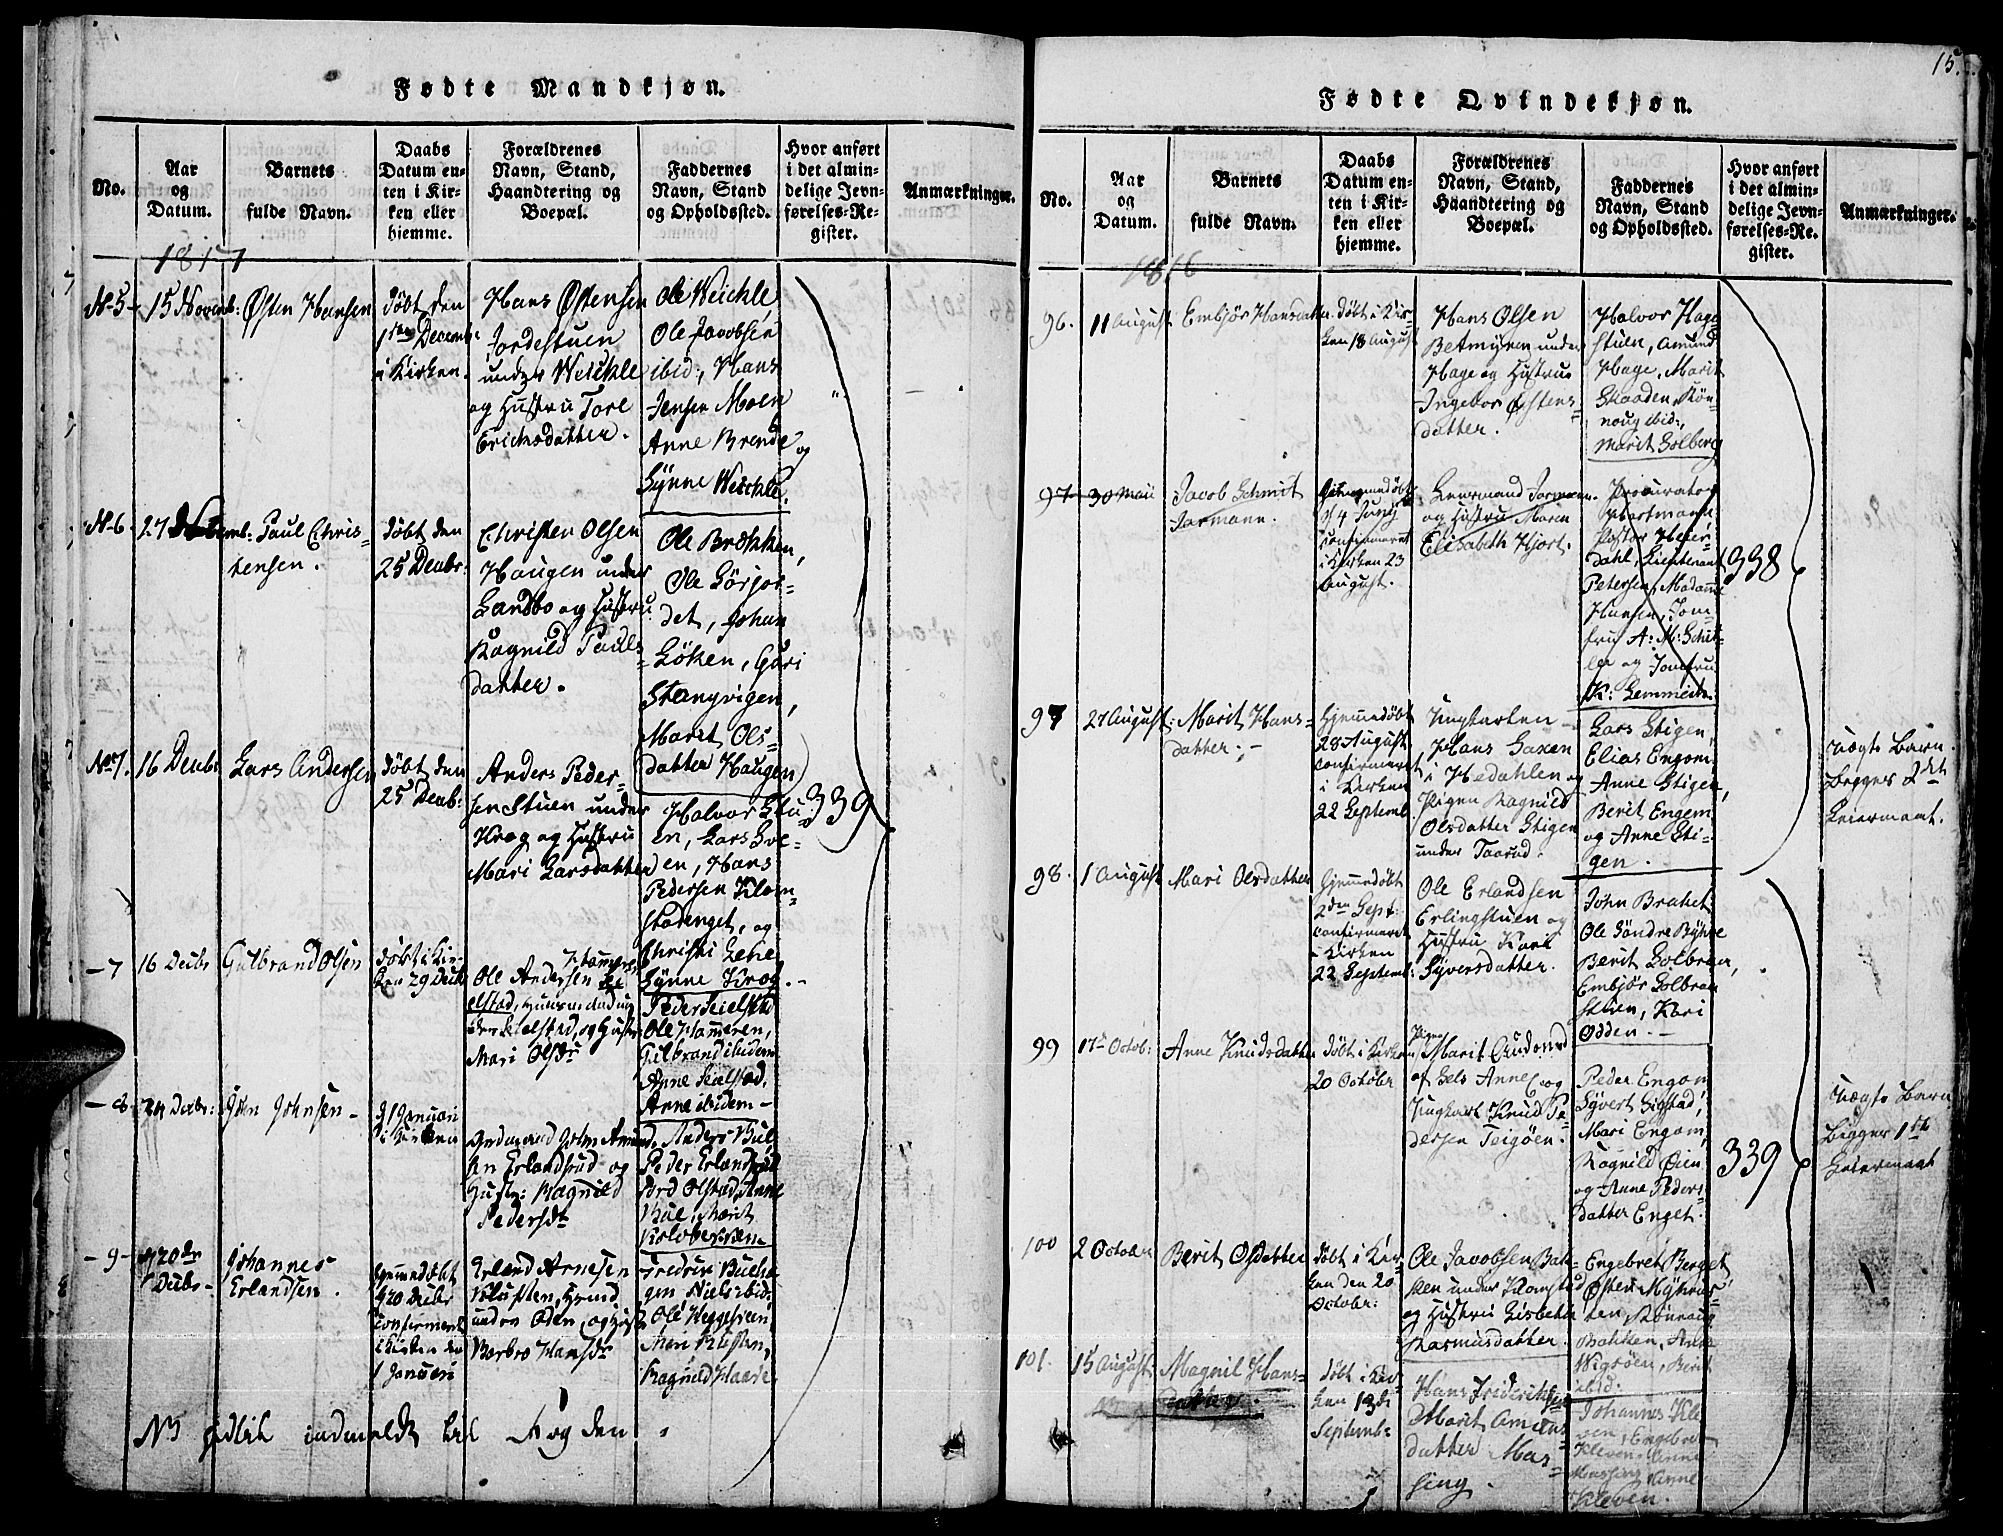 Fødte Mandkjøn.
No.
Aar
og
Datum.
Barnets
fulde Navn.
Daabs
Datum en-
ten i Kir-
ken eller
hjemme.
Forældrenes
Navn, Stand,
Haandtering og
Boepæl.
Faddernes
Navn, Stand
og Opholdssted.
Hvor anført
i det almin-
delige Jevn-
førelses-Re-
gister.
Anmærkninger.
1817
No 5
15 Novemb:
Østen Hansen
døbt den
1ste Decemb:
i Kirken.
Hans Østensen
Jordestuen
under Weichle
og Hustru Tore
Erichsdatter.
Ole Weichle
Ole Jacobsen
ibid:, Hans
Jensen Moen
Anne Brende og
Synne Weichle.
No 6
27
Paul Chris-
tensen.
døbt den
25 Decbr:
Christen Olsen
Haugen under
Sandbo og Hustru
Ragnild Pauls
datter.
Ole Brækken,
Ole Sørjor-
det, Johan
Løken, Guri
Stangvigen,
Marit Ols-
datter Haugen
No 7.
16 Decbr
Lars Andersen
døbt den
25 Decb:
Anders Peder-
sen Stuen under
Krog og Hustru
Mari Larsdatter
Halvor Stu-
en, Lars Sve-
en, Hans
Pedersen Klom-
stadenget, og
Christi Lene
Synne Krog.
339
- 7
16 Decbr
Gulbrand Olsen
døbt i Kir-
ken 29 Decbr
Ole Andersen
elstad, Huusmd: og
Mari Olsdr
Peder Seielstad
Ole Hameren,
Gulbrand ibidem
Anne Seielstad,
Anne ibidem -
- 8
24 Decbr:
John Johnsen -
d 1 Januari
i Kirken
Gadmand John Amund-
sen Erlandsrud og
Hustr: Ragnild
Pedersdr
Anders Bul,
Peder Erlandsrud
Tord Olstad, Anne
Bul, Marit
- 9 -
20de
Decbr -
Johannes
Erlandsen.
hjemmedøbt
20 Decbr
confirmeret
i Kirken den
1 Januari
Erland Arnesen
Kluften, Huusmd
under Oden, og Hust
Barbro Hansdr
Ole Heggelveen,
Mari Kluften,
Ragnild Haare.
Fødte Qvindekjøn.
15.
No.
Aar
og
Datum.
Barnets
fulde Navn.
Daabs
Datum en-
ten i Kir-
ken eller
hjemme.
Forældrenes
Navn, Stand,
Haandtering og
Boepæl.
Faddernes
Navn, Stand
og Opholdssted.
Hvor anført
i det almin-
delige Jevn-
førelses-Re-
gister.
Anmærkninger.
1816
96.
11 August
Embjør Hansdatter
døbt i Kir-
ken 18 August
Hans Olsen
Betmyren under
Hage og Hustrue
Ingebor Østens-
datter.
Halvor Hage-
stuen, Amund
Hage, Marit
Skaaden, Røn-
noug ibid:,
Marit Solberg
97
30 Maii
Jacob Schmit
Jormann.
hjemmedøbt
d 4 Junij
confirmeret
i Kirken 23
August.
Leermand Jormann
og Hustru Maren
Elisabeth Hjort.
Procurator
Hartmann
Pastor Heier-
dahl, Lieutenant
Petersen, Madamme
Hansen, Jom-
fru A: M: Schil-
ler og Jomfru
338
97
27 August:
Marit Hans-
datter. -
hjemmedøbt
28 August
confirmeret
i Kirken
22 Septemb.
Ungkarlen
Hans Saxen
i Hedahlen og
Pigen Ragnild
Olsdatter Stigen
under Taarud.
Lars Stigen,
Elias Engom,
Anne Stigen,
Berit Engem
og Anne Sti-
gen.
uægte Barn.
begges 2det
Leiermaal.
98.
1 August
Mari Olsdatter
hjemmedøbt
2den Sept:
confirmeret
i Kirken
22 Septemb:
Ole Erlandsen
Erlingstuen og
Hustru Kari
Syversdatter.
John Braket,
Ole Søndre Bykle
Berit Solbraa,
Embjør Solbraa
Stuen, Kari
Odden. -
99
17de Octob:
Anne Knudsdatter
døbt i Kirken
20 Octobr
Pigen
Marit Guds
og
Ungkarl Knud Pe-
dersen Teigøen.
Peder Engom,
Syvert Sigstad,
Mari Engom,
Ragnild Øien
og Anne Peders-
datter Enget.
339
uægte Barn
Begges 1ste
Leiermaal
100
2 Octobr
Berit Olsdatter
døbt i Kir-
ken den 20
Octobr:
Ole Jacobsen Bak-
ken under Klomstad
og Hustru Lisbeth
Rasmusdatter.
Engebret Berget
Østen Myhrus-
ten, Rønnoug
Bakken, Anne
Wigsøen, Berit
ibid:
101.
15 August:
Magnil Hans-
datter.
døbt i Kir-
ken 13de
Septemb:
Hans Frideriksen
Marit Amuns-
datter Mas-
sing.
Johannes Kle-
ven, Engebret
Kleven, Anne
Massing, Anne
Kleven.